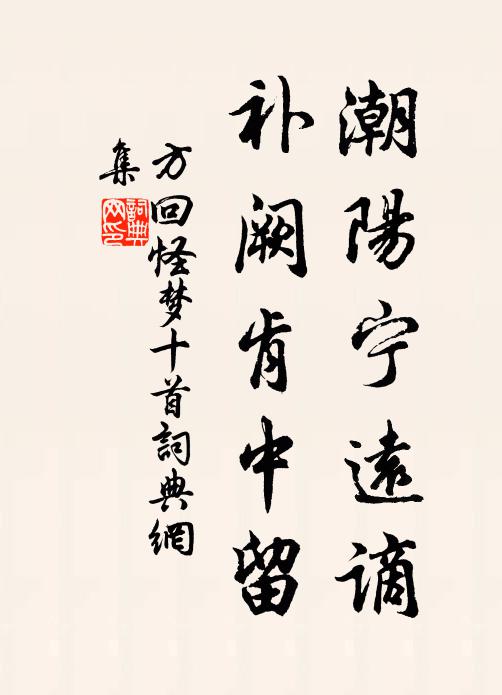 潮陽宁遠謫
补阙肯中留
方回怪梦十首詞典網
集
詞典
网印